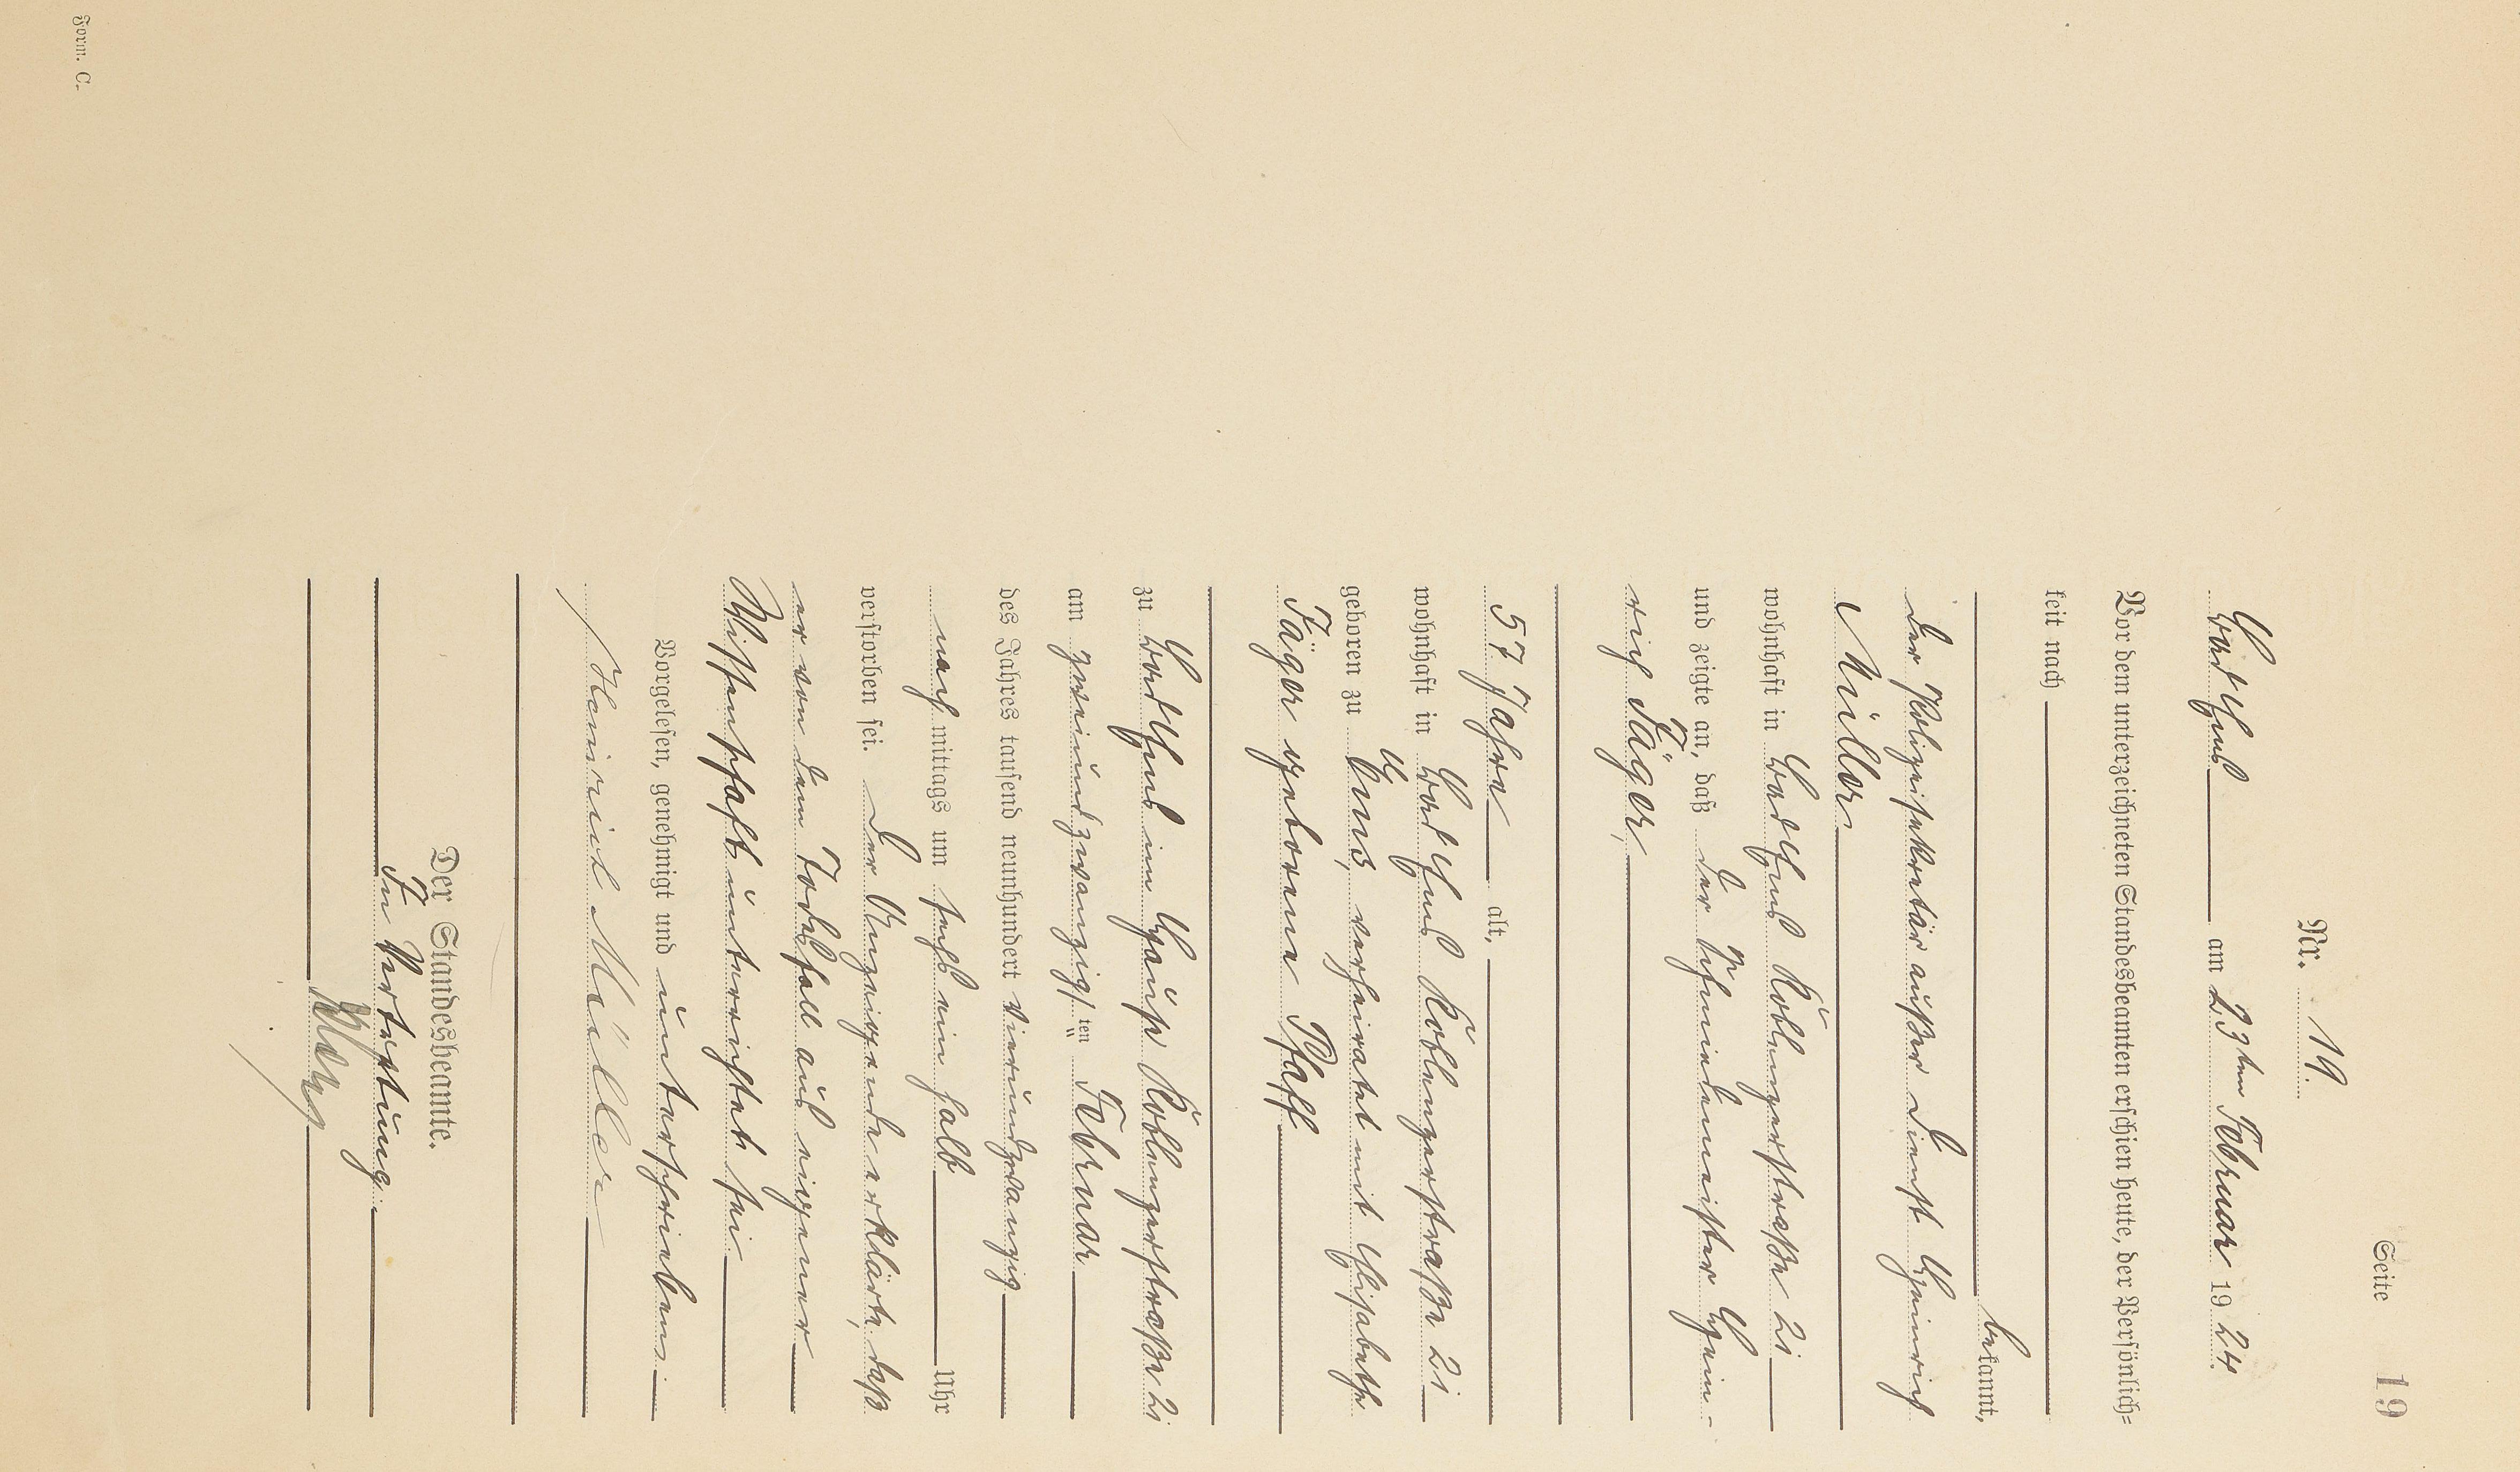 Seite 19
Nr. 19.
Bad Ems am 23ten Februar 1924
Vor dem unterzeichneten Standesbeamten erschien heute, der Persönlich=
keit nach
bekannt,
der Polizeisekretär außer Dienst Heinrich
Müller
wohnhaft in Bad Ems Koblenzerstraße 21
und zeigte an, daß der Schmiedemeister Hein-
rich Jäger,
57 Jahre alt,
wohnhaft in Bad Ems Koblenzerstraße 21
geboren zu Ems, verheiratet mit Elisabeth
Jäger geborene Pfaff
zu Bad Ems im Hause Koblenzerstraße 21
am zweiundzwanzigsten Februar
des Jahres tausend neunhundert vierundzwanzig
nach mittags um sechs ein halb Uhr
verstorben sei. Der Anzeigende erklärte, daß
er von dem Todesfall aus eigener
Wissenschaft unterrichtet sei
Vorgelesen, genehmigt und unterschrieben
Heinrich Müller
Der Standesbeamte.
In Vertretung.
Form. C.